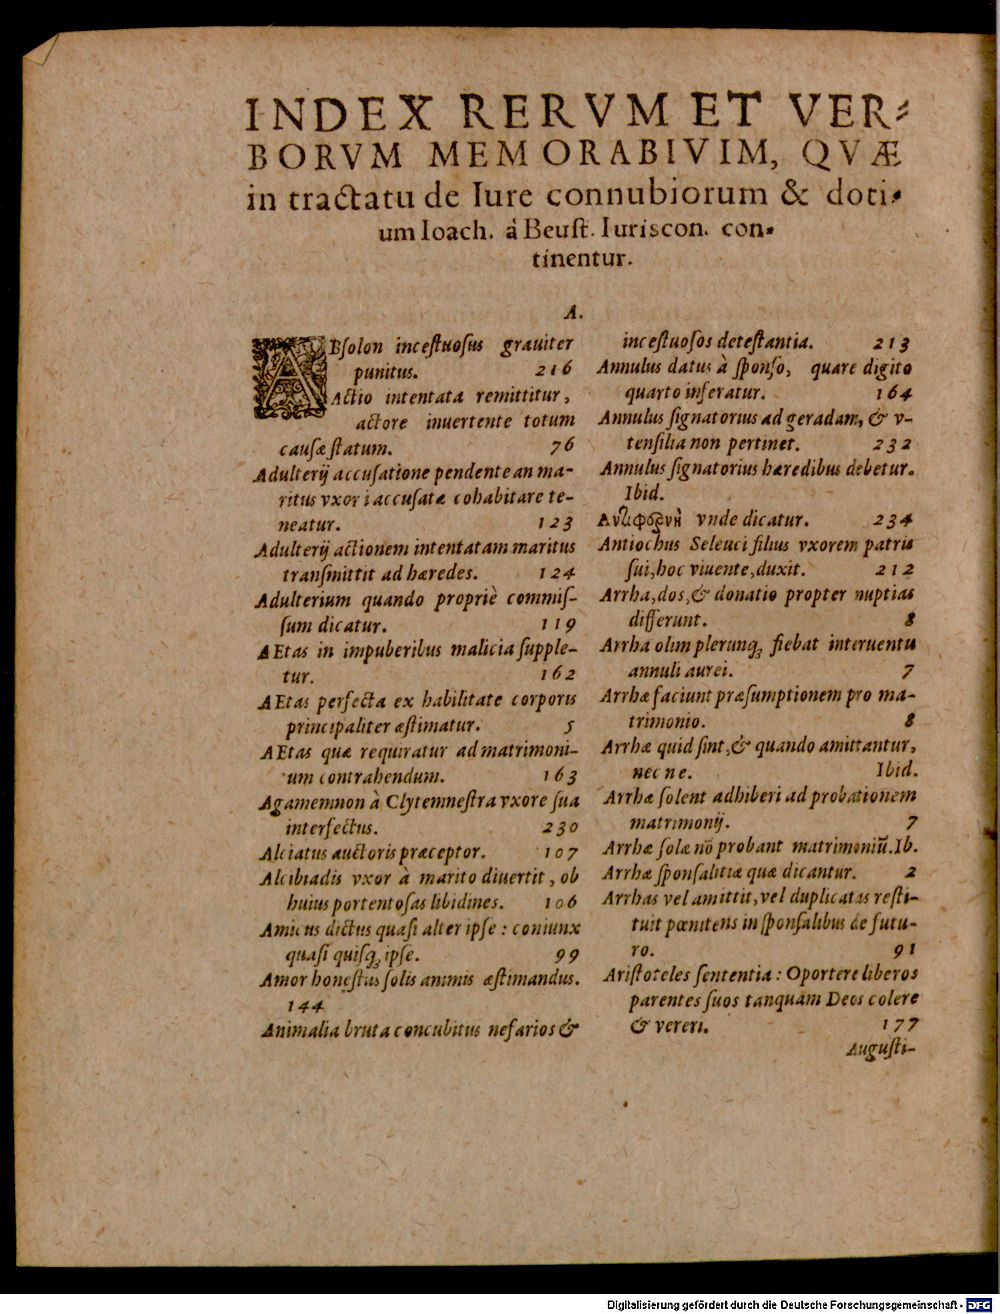 INDEX RERVM ET VER⸗
BORVM MEMORABIVIM, QVÆ
in tractatu de Iure connubiorum & doti⸗
um Ioach. à Beuſt. Iuriscon. con⸗
tinentur.
A.
ABſolon inceſtuoſus grauiter
punitus. 216
Actio intentata remittitur,
actore inuertente totum
cauſæ ſtatum. 76
Adulterij accuſatione pendente an ma-
ritus vxori accuſatæ cohabitare te-
neatur. 123
Adulterij actionem intentatam maritus
tranſmittit ad hæredes. 124
Adulterium quando propriè commiſ-
ſum dicatur. 119
AEtas in impuberibus malicia ſupple-
tur. 162
AEtas perfecta ex habilitate corporis
principaliter æſtimatur. 5
AEtas quæ requiratur ad matrimoni-
um contrahendum. 163
Agamemnon à Clytemneſtra vxore ſua
interfectus. 230
Alciatus auctoris præceptor. 107
Alcibiadis vxor à marito diuertit, ob
huius portentoſas libidines. 106
Amicus dictus quaſi alter ipſe: coniunx
quaſi quiſq; ipſe. 99
Amor honeſtus ſolis animis æſtimandus.
144
Animalia bruta concubitus nefarios &
inceſtuoſos deteſtantia. 213
Annulus datus à ſponſo, quare digito
quarto inſeratur. 164
Annulus ſignatorius ad geradam, & v-
tenſilia non pertinet. 232
Annulus ſignatorius hæredibus debetur.
Ibid.
vnde dicatur. 234
Antiochus Seleuci filius vxorem patris
ſui, hoc viuente, duxit. 212
Arrha, dos, & donatio propter nuptias
differunt. 8
Arrha olim plerunq; fiebat interuentu
annuli aurei. 7
Arrhæ faciunt præſumptionem pro ma-
trimonio. 8
Arrhæ quid ſint, & quando amittantur,
nec ne. Ibid.
Arrhæ ſolent adhiberi ad probationem
matrimonij. 7
Arrhæ ſolæ nō probant matrimoniū. Ib.
Arrhæ ſponſalitiæ quæ dicantur. 2
Arrhas vel amittit, vel duplicatas reſti-
tuit pœnitens in ſponſalibus de futu-
ro. 91
Ariſtoteles ſententia: Oportere liberos
parentes ſuos tanquam Deos colere
& vereri. 177
Auguſti-
Digitalisierung gefördert durch die Deutsche Forschungsgemeinschaft - DFG